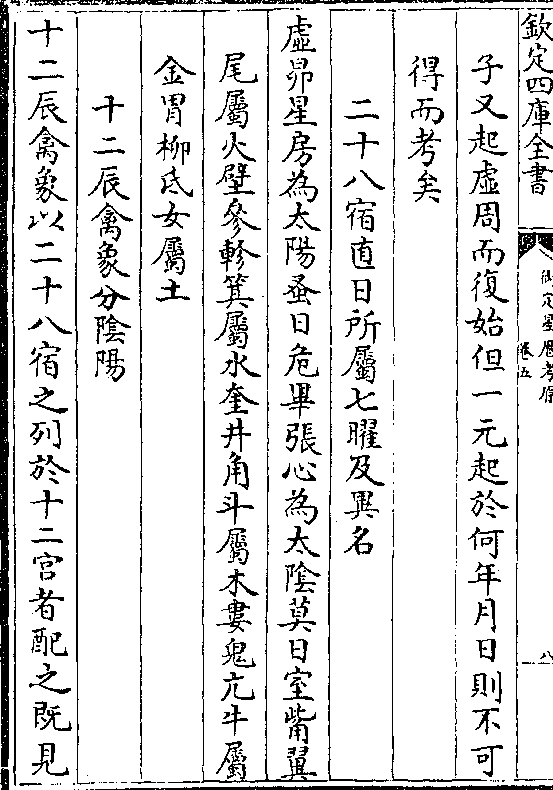 欽定四庫全書
御定星厯考原
卷五
八
子又起虚周而復始但一元起於何年月日則不可
得而考矣
二十八宿直日所屬七曜及異名
虚昴星房為太陽蚤日危畢張心為太陰莫日室觜翼
尾屬火壁參軫箕屬水奎井角斗屬木婁鬼亢牛屬
金胃柳氐女屬土
十二辰禽象分陰陽
十二辰禽象以二十八宿之列於十二宫者配之既見